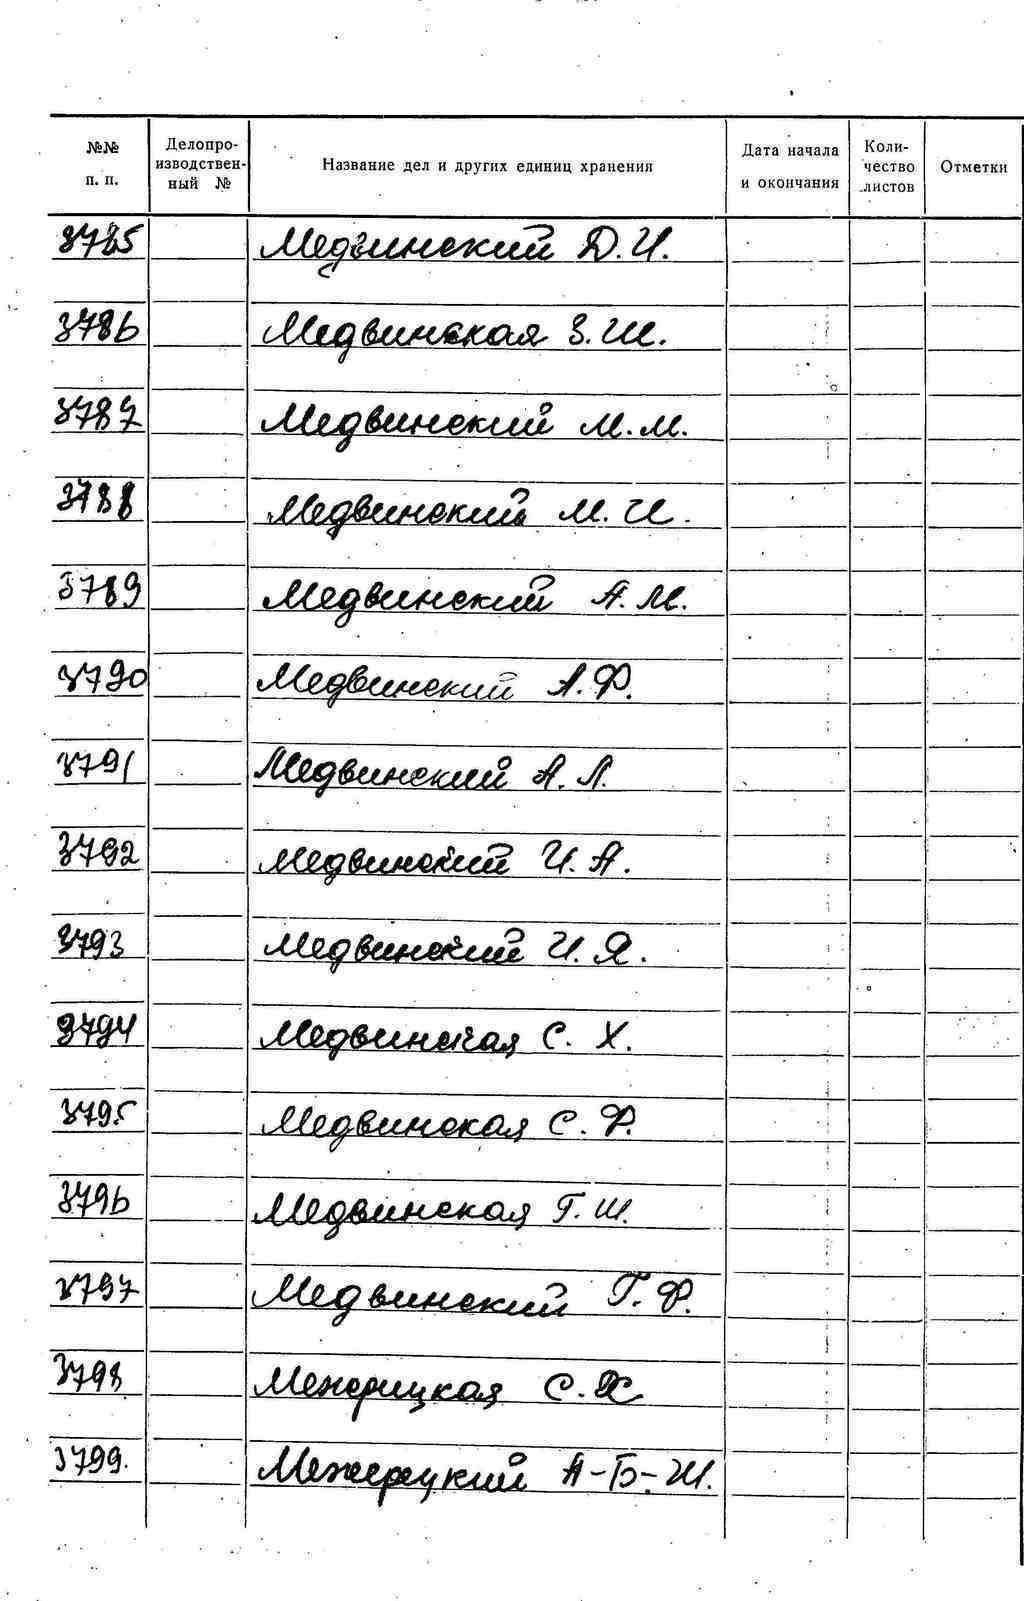 №№ п. п. Делопроизводственный № Название дел и других единиц хранения Дата начала и окончания Количество листов Отметки
3785 Медвинский Д. И.
3786 Медвинская З. Ш.
3787 Медвинский М. М.
3788 Медвинский М. И.
3789 Медвинский А. М.
3790 Медвинский А. Ф.
3791 Медвинский А. Л.
3792 Медвинский И. А.
3793 Медвинский И. Я.
3794 Медвинская С. Х.
3795 Медвинская С. Ф.
3796 Медвинская Г. Ш.
3797 Медвинский Г. Ф.
3798 Межерицкая С. Х
3799. Межерецкий А-Б-Ш.